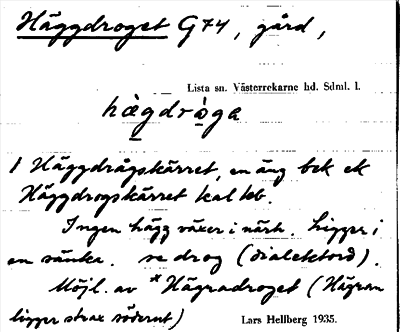 Häggdroget G74, gård,
Lista sn. Västerrekarne hd. Sdml. l.
hàgdrò̱ga
1 Häggdrågskärret, en äng bek ek
Häggdrogskärret kal kb.
Ingen hägg växer i närh. Ligger i
en sänka. se drog (dialektord).
Möjl. av *Hägradroget (Hägran
ligger strax söderut)
Lars Hellberg 1935.